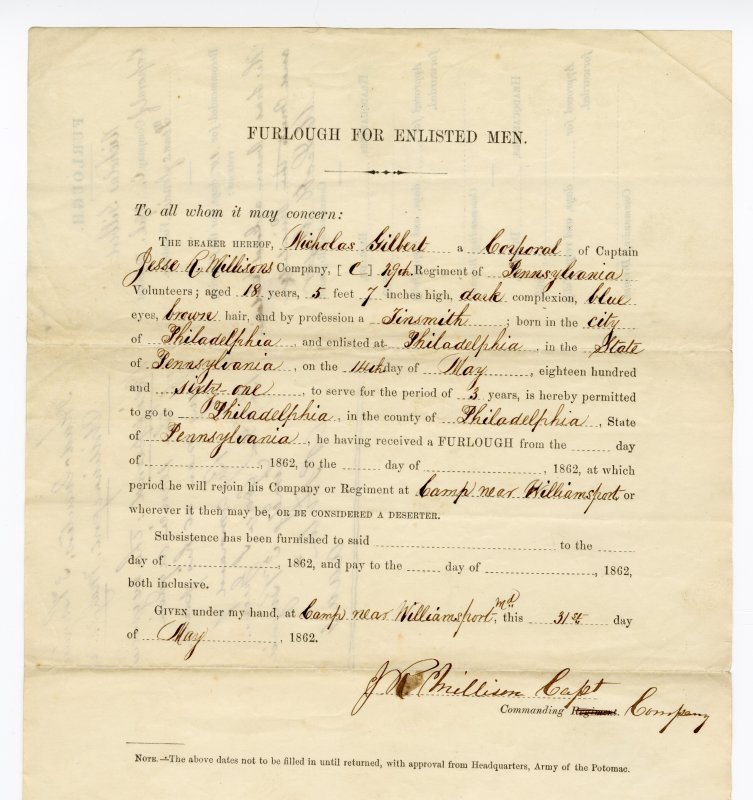 FURLOUGH FOR ENLISTED MEN.
To all whom it may concern:
THE BEARER HEREOF, Nicholas Gilbert a Corporal of Captain
Jesse R. Millisons Company, [ C ] 29th Regiment of Pennsylvania
Volunteers; aged 18 years, 5 feet 7 inches high, dark complexion, blue
eyes, brown hair, and by profession a Tinsmith ; born in the city
of Philadelphia and enlisted at Philadelphia , in the State
of Pennsylvania , on the 14th day of May , eighteen hundred
and sixty-one , to serve for the period of 3 years, is hereby permitted
to go to Philadelphia , in the county of Philadelphia , State
of Pennsylvania , he having received a FURLOUGH from the day
of , 1862, to the day of , 1862, at which
period he will rejoin his Company or Regiment at Camp near Williamsport or
wherever it then may be, OR BE CONSIDERED A DESERTER.
Subsistence has been furnished to said to the
day of , 1862, and pay to the day of , 1862,
both inclusive.
GIVEN under my hand, at Camp near Williamsport, Md. this 31st day
of May , 1862.
J R Millison Capt
Commanding Regiment. Company
NOTE.—The above dates not to be filled in until returned, with approval from Headquarters, Army of the Potomac.